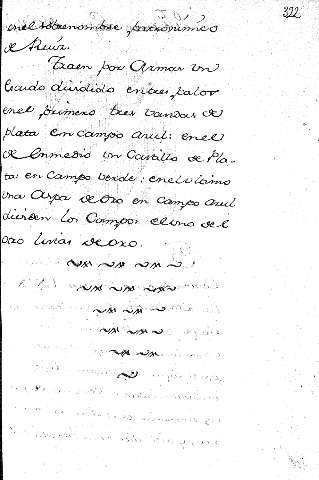 222
en el sobrenombre, patronimico
de Ruiz.
Traen por Armas un
Escudo dividido en tres palos
en el primero tres vandas de
plata en campo azul: en el
de Enmedio un Castillo de Pla-
ta en campo verde: en el ultimo
una Aspa de oro en campo azul
dividen los Campos el uno del
otro lineas de oro.